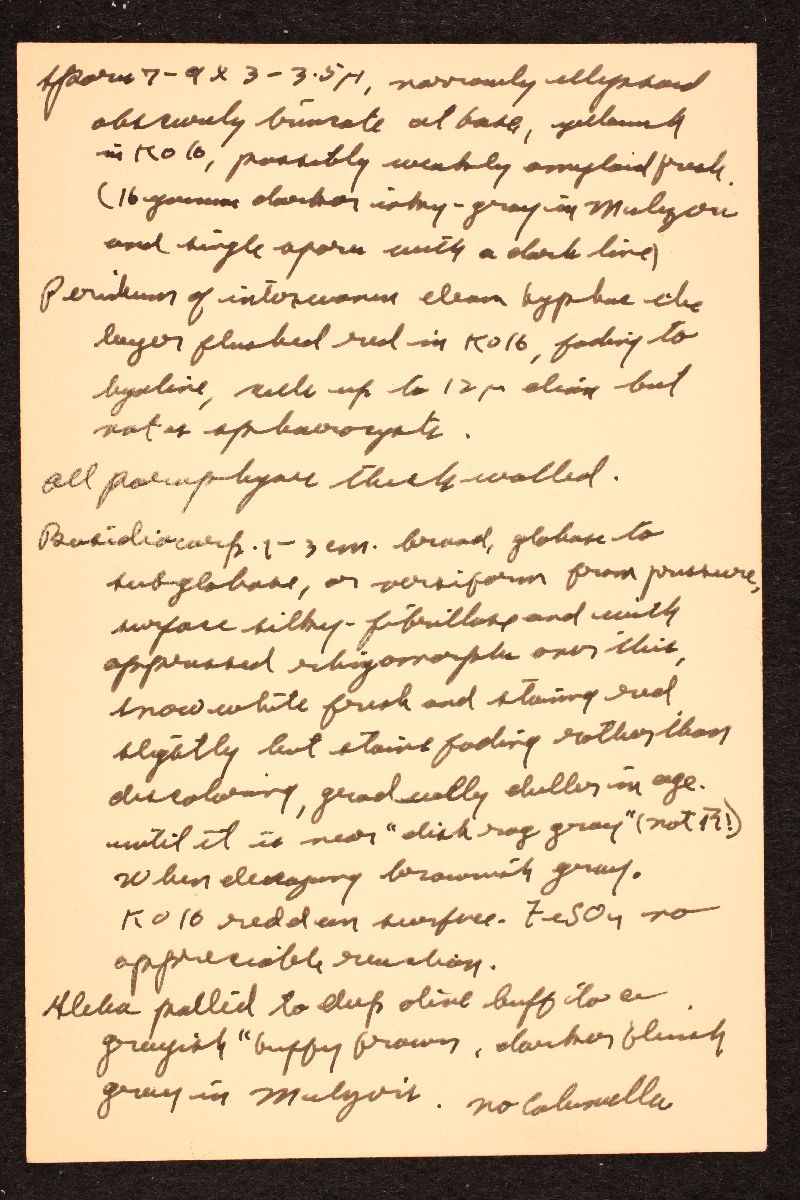 spores 7-9 X 3-3.5µ, narrowly ellipsoid
obscurely truncate at base, yellowish
in KOH, possibly weakly amyloid fresh.
( darker inky-gray in Melzers
and single spores with a dark line)
Peridium of interwoven clean hyphae the
layer flushed red in KOH, fading to
hyaline, cells up to 12µ diam but
not as sphaerocysts.
all hyphae thick walled.
Basidiocarp. 1-3 cm. broad, globose to
subglobose, or versiform from pressure,
surface silky-fibrillose and with
appressed rhizomorphs over this,
snow white fresh and staining red
slightly but stains fading rather than
discoloring, gradually duller in age.
until it is near "dish rag gray" (not R!)
When decaying brownish gray.
KOH redden surface. FeSO4 no
appreciable reaction.
Gleba pallid to deep olive buff to a
grayish "buffy brown, darker bluish
gray in Melzer's. no Columella